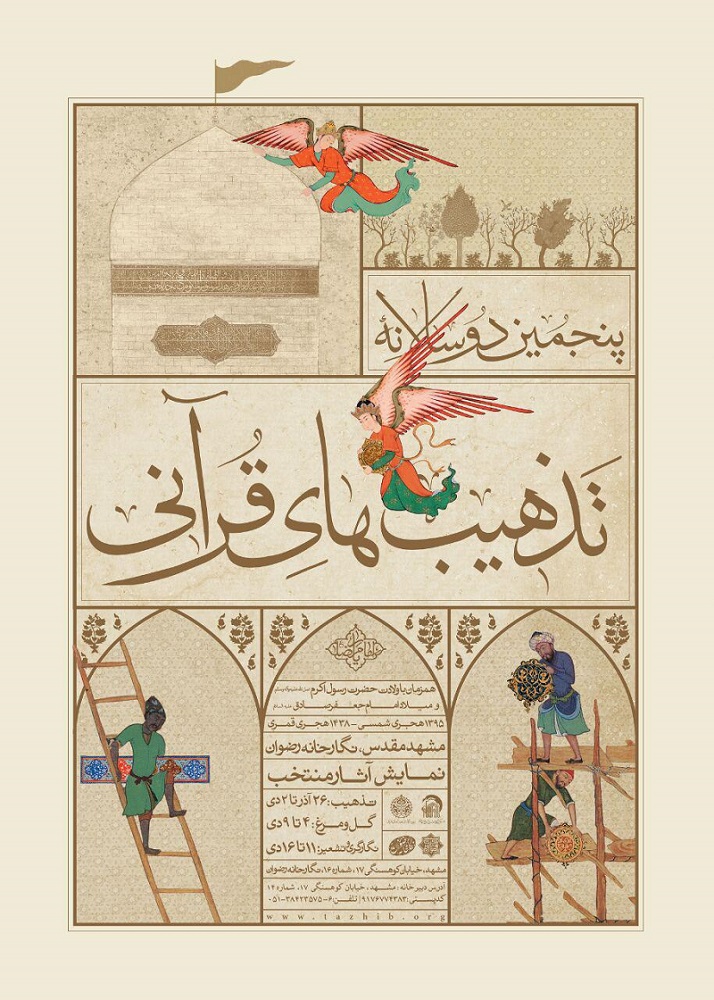 پنجمین دوسالانهٔ
تذهیب‌هایِ قُرآنی
یا امام رضا
همزمان با ولادت حضرت رسول اکرم
و میلاد امام جعفر صادق
۱۳۹۵ هجری شمسی - ۱۴۳۸ هجری قمری
مشهد مقدس، نگارخانه رضوان
نمایش آثار منتخب
تذهیب: ۲۶ آذر تا ۲ دی
گل و مرغ: ۴ تا ۹ دی
نگارگری و تشعیر: ۱۱ تا ۱۶ دی
مشهد، خیابان کوهسنگی ۱۷، شماره ۱۶، نگارخانه رضوان
آدرس دبیرخانه: مشهد، خیابان کوهسنگی ۱۷، شماره ۱۴
کدپستی: ۹۱۷۶۷۷۴۳۸۳ | تلفن: ۶-۳۸۴۲۳۵۷۵-۰۵۱
www.tazhib.org